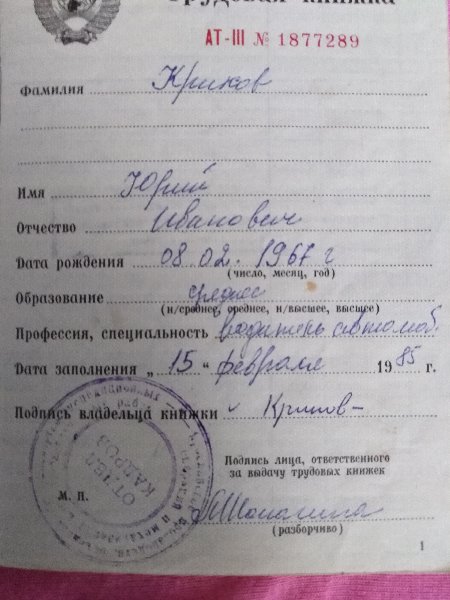 Трудовая книжка
АТ-III № 1877289
Фамилия Криков
Имя Юрий
Отчество Иванович
Дата рождения 08.02.1967 г
(число, месяц, год)
Образование среднее
(н/среднее, среднее, н/высшее, высшее)
Профессия, специальность водитель автомоб.
Дата заполнения „ 15 “ февраля 1985 г.
Подпись владельца книжки Криков
Подпись лица, ответственного
за выдачу трудовых книжек
М. П.
ОТДЕЛ
КАДРОВ
(разборчиво)
1